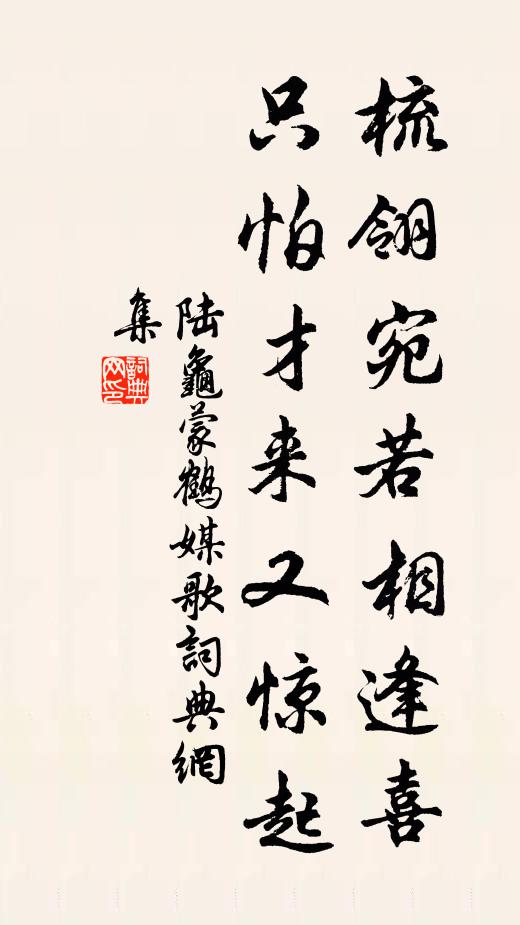 梳翎宛若相逢喜
只怕才来又惊起
陆龜蒙鶴媒歌詞典網
集
詞典网印